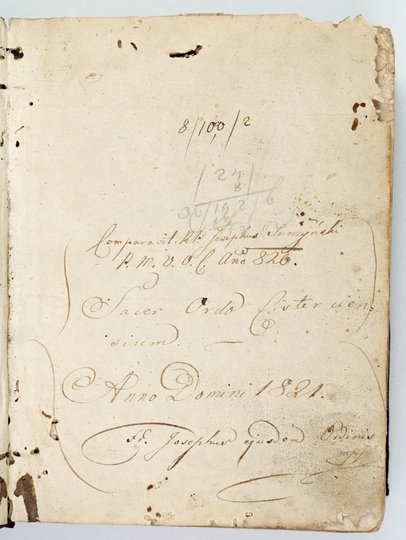 8/100/2
24
8
192
6
Comparavit Josephus
P. M. V. O. C. Ano 826.
Sacer Ordo Cistercien-
sium.
Anno Domini 1821.
Fr. Josephus ejusdem Ordinis
mpp